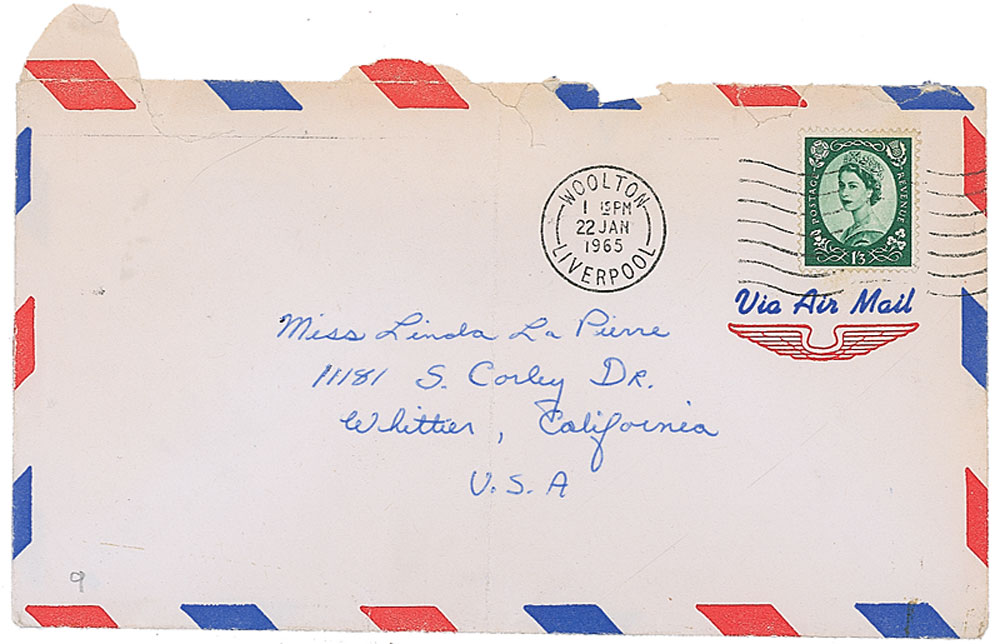 WOOLTON
1 15PM
22 JAN
1965
LIVERPOOL
POSTAGE REVENUE
1/3
Via Air Mail
Miss Linda La Pierre
11181 S. Corley DR.
Whittier, California
U.S.A
9